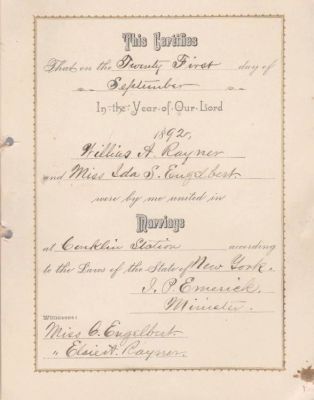 This Certifies
That on the Twenty First day of
September
In the Year of Our Lord
1892,
Willius A. Rayner
and Miss Ida S. Engelbert
were by me united in
Marriage
at Conklin Station according
to the Laws of the State of New York.
J. P. Emerick,
Minister.
Witnesses:
Miss C. Engelbert
" Elsie A. Rayner.